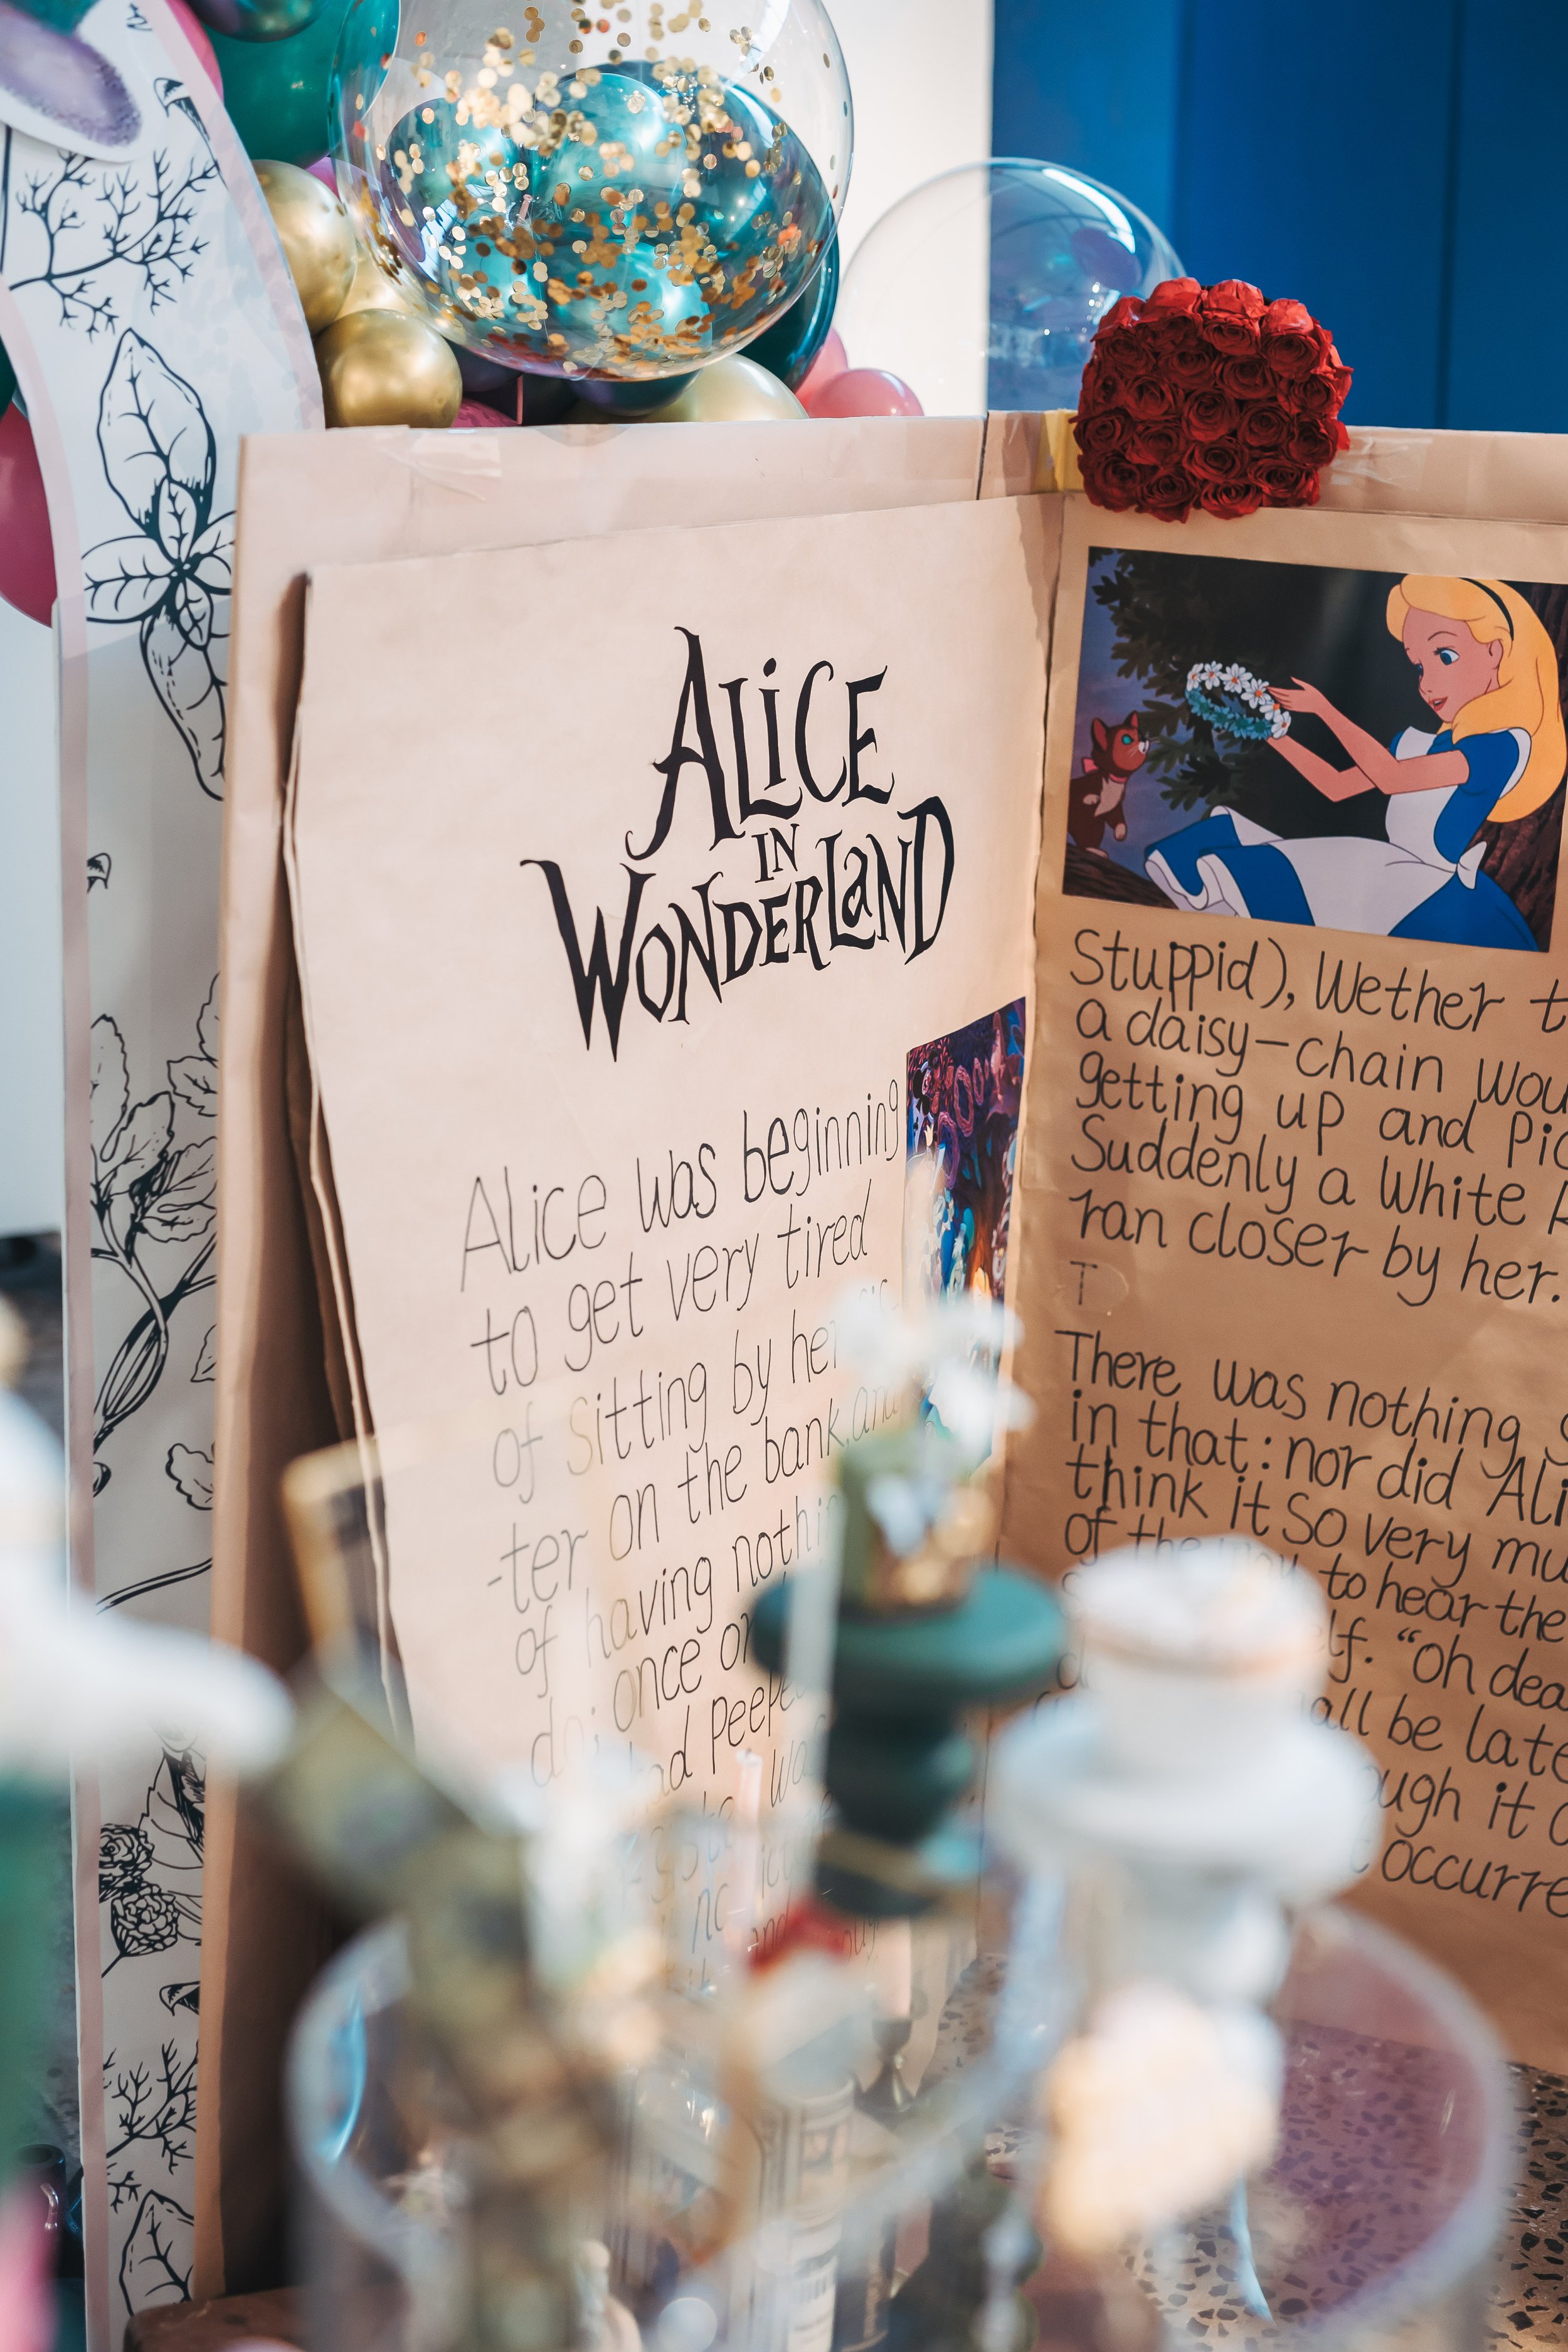 ALiCE
IN
WONDERLaND
Alice was beginning
to get very tired
of sitting by her sis-
-ter on the bank, and
of having nothin
do: once or
had peepe
Stuppid), Wether t
a daisy-chain wou
getting up and Pic
Suddenly a White R
ran closer by her.
T
There was nothing S
in that: nor did Ali
think it So very mu
of the way to hear the
elf. "oh dea
all be late
ough it o
occurre